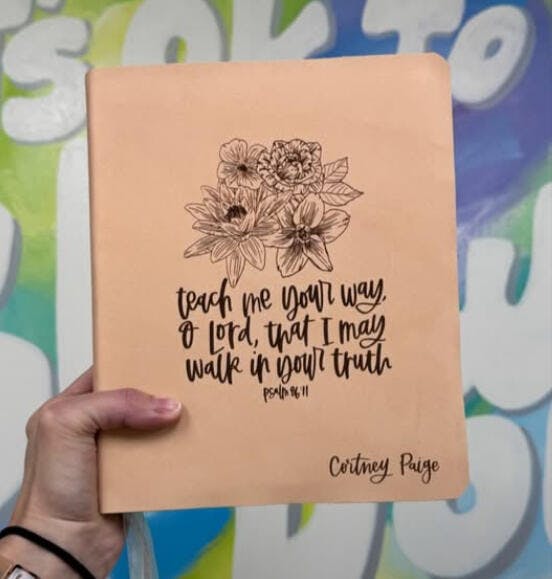 's OK to
teach me your way,
O Lord, that I may
walk in your truth
psalm 86:11
Cortney Paige